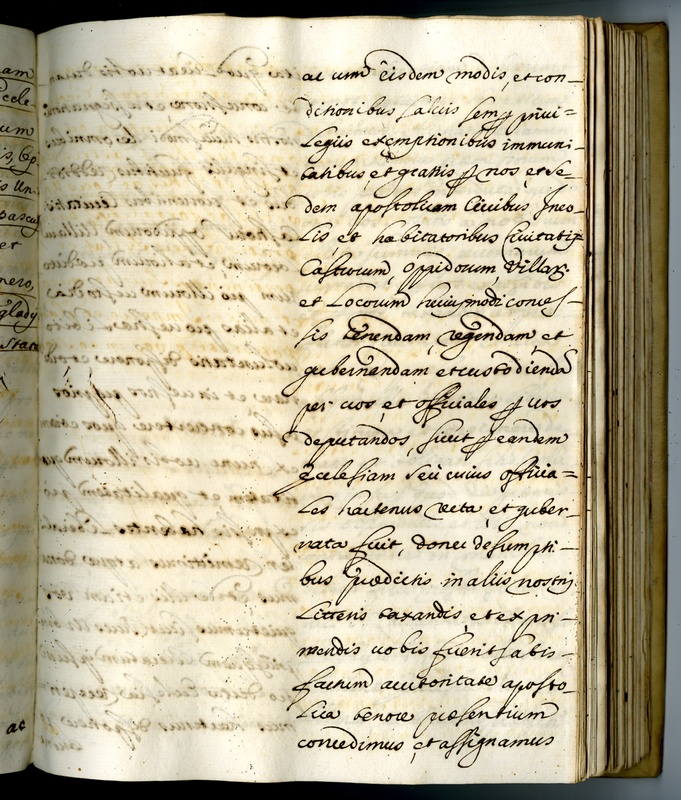 am
eccle-
um
is, Ep
is Un
pascuy
et
nero,
glady
State
at
ac cum eisdem modis, et con-
ditionibus saluis semp priui=
legiis exemptionibus immuni-
tatibus, et gratiis p nos, et se-
dem apostolicam Ciuibus Inco-
lis, et habitatoribus Ciuitatis
Castrorum, Oppidorum, Villar.
et Locorum huiusmodi conces-
sis tenendam, regendam, et
gubernendam et custodiendã
per uos, et officiales p uos
deputandos, sicut p eandem
Ecclesiam seù cuius officia=
les hactenus recta, et guber-
nata fuit, donec de sumpti-
bus prædictis in aliis nostris
Litteris taxandis, et expri-
mendis uobis fuerit satis-
factum auctoritate aposto-
lica tenore præsentium
concedimus, et assignamus